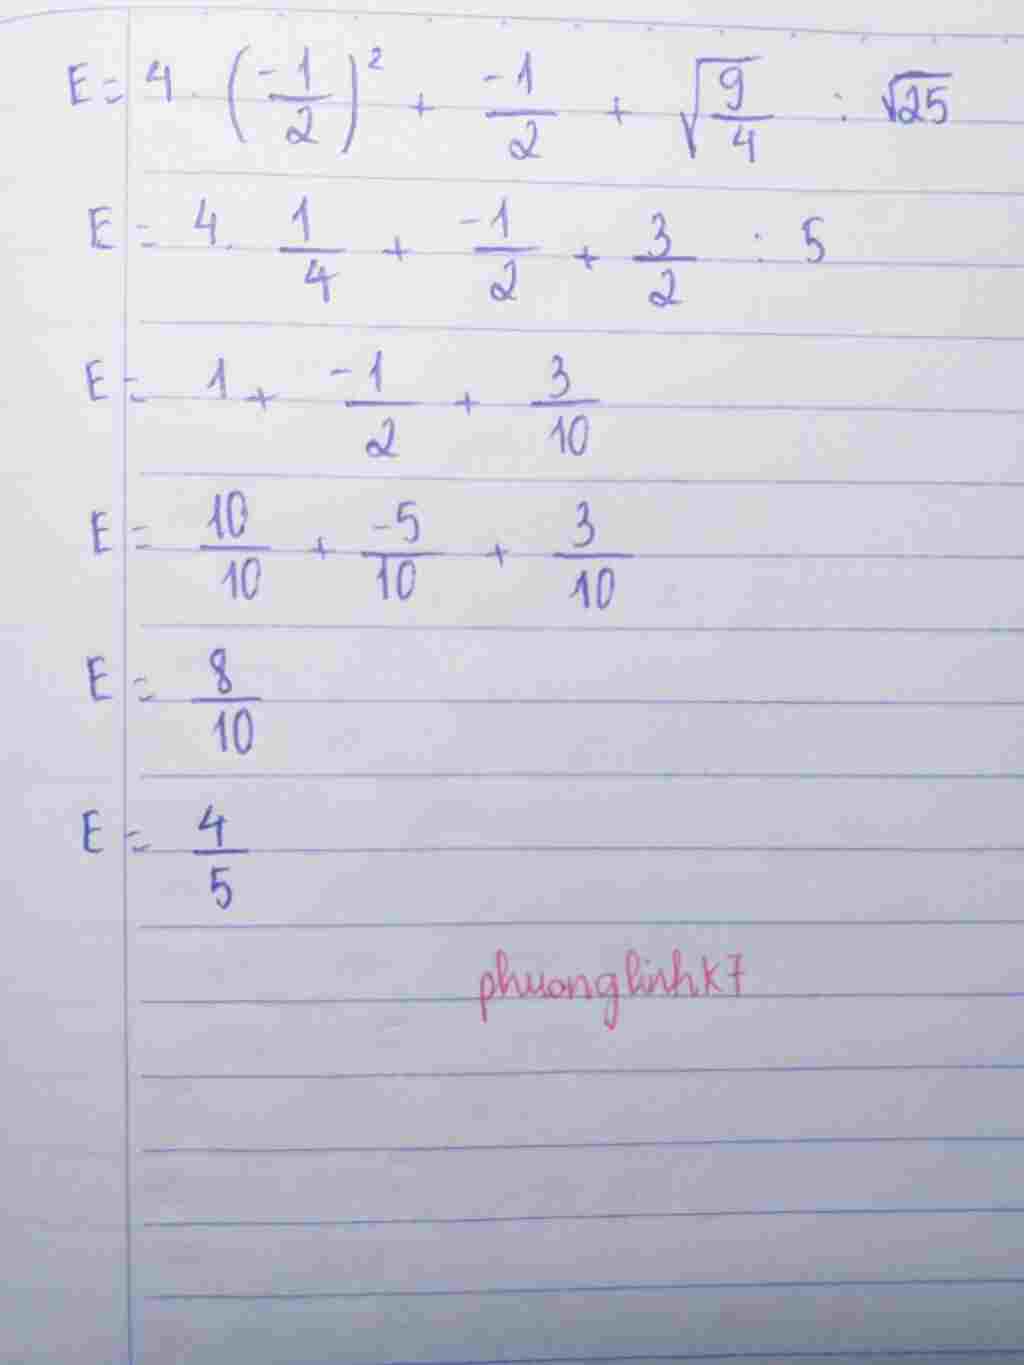 E = 4 . (-1/2)² + -1/2 + √(9/4) : √25
E = 4 . 1/4 + -1/2 + 3/2 : 5
E = 1 + -1/2 + 3/10
E = 10/10 + -5/10 + 3/10
E = 8/10
E = 4/5
phuonglinhk7